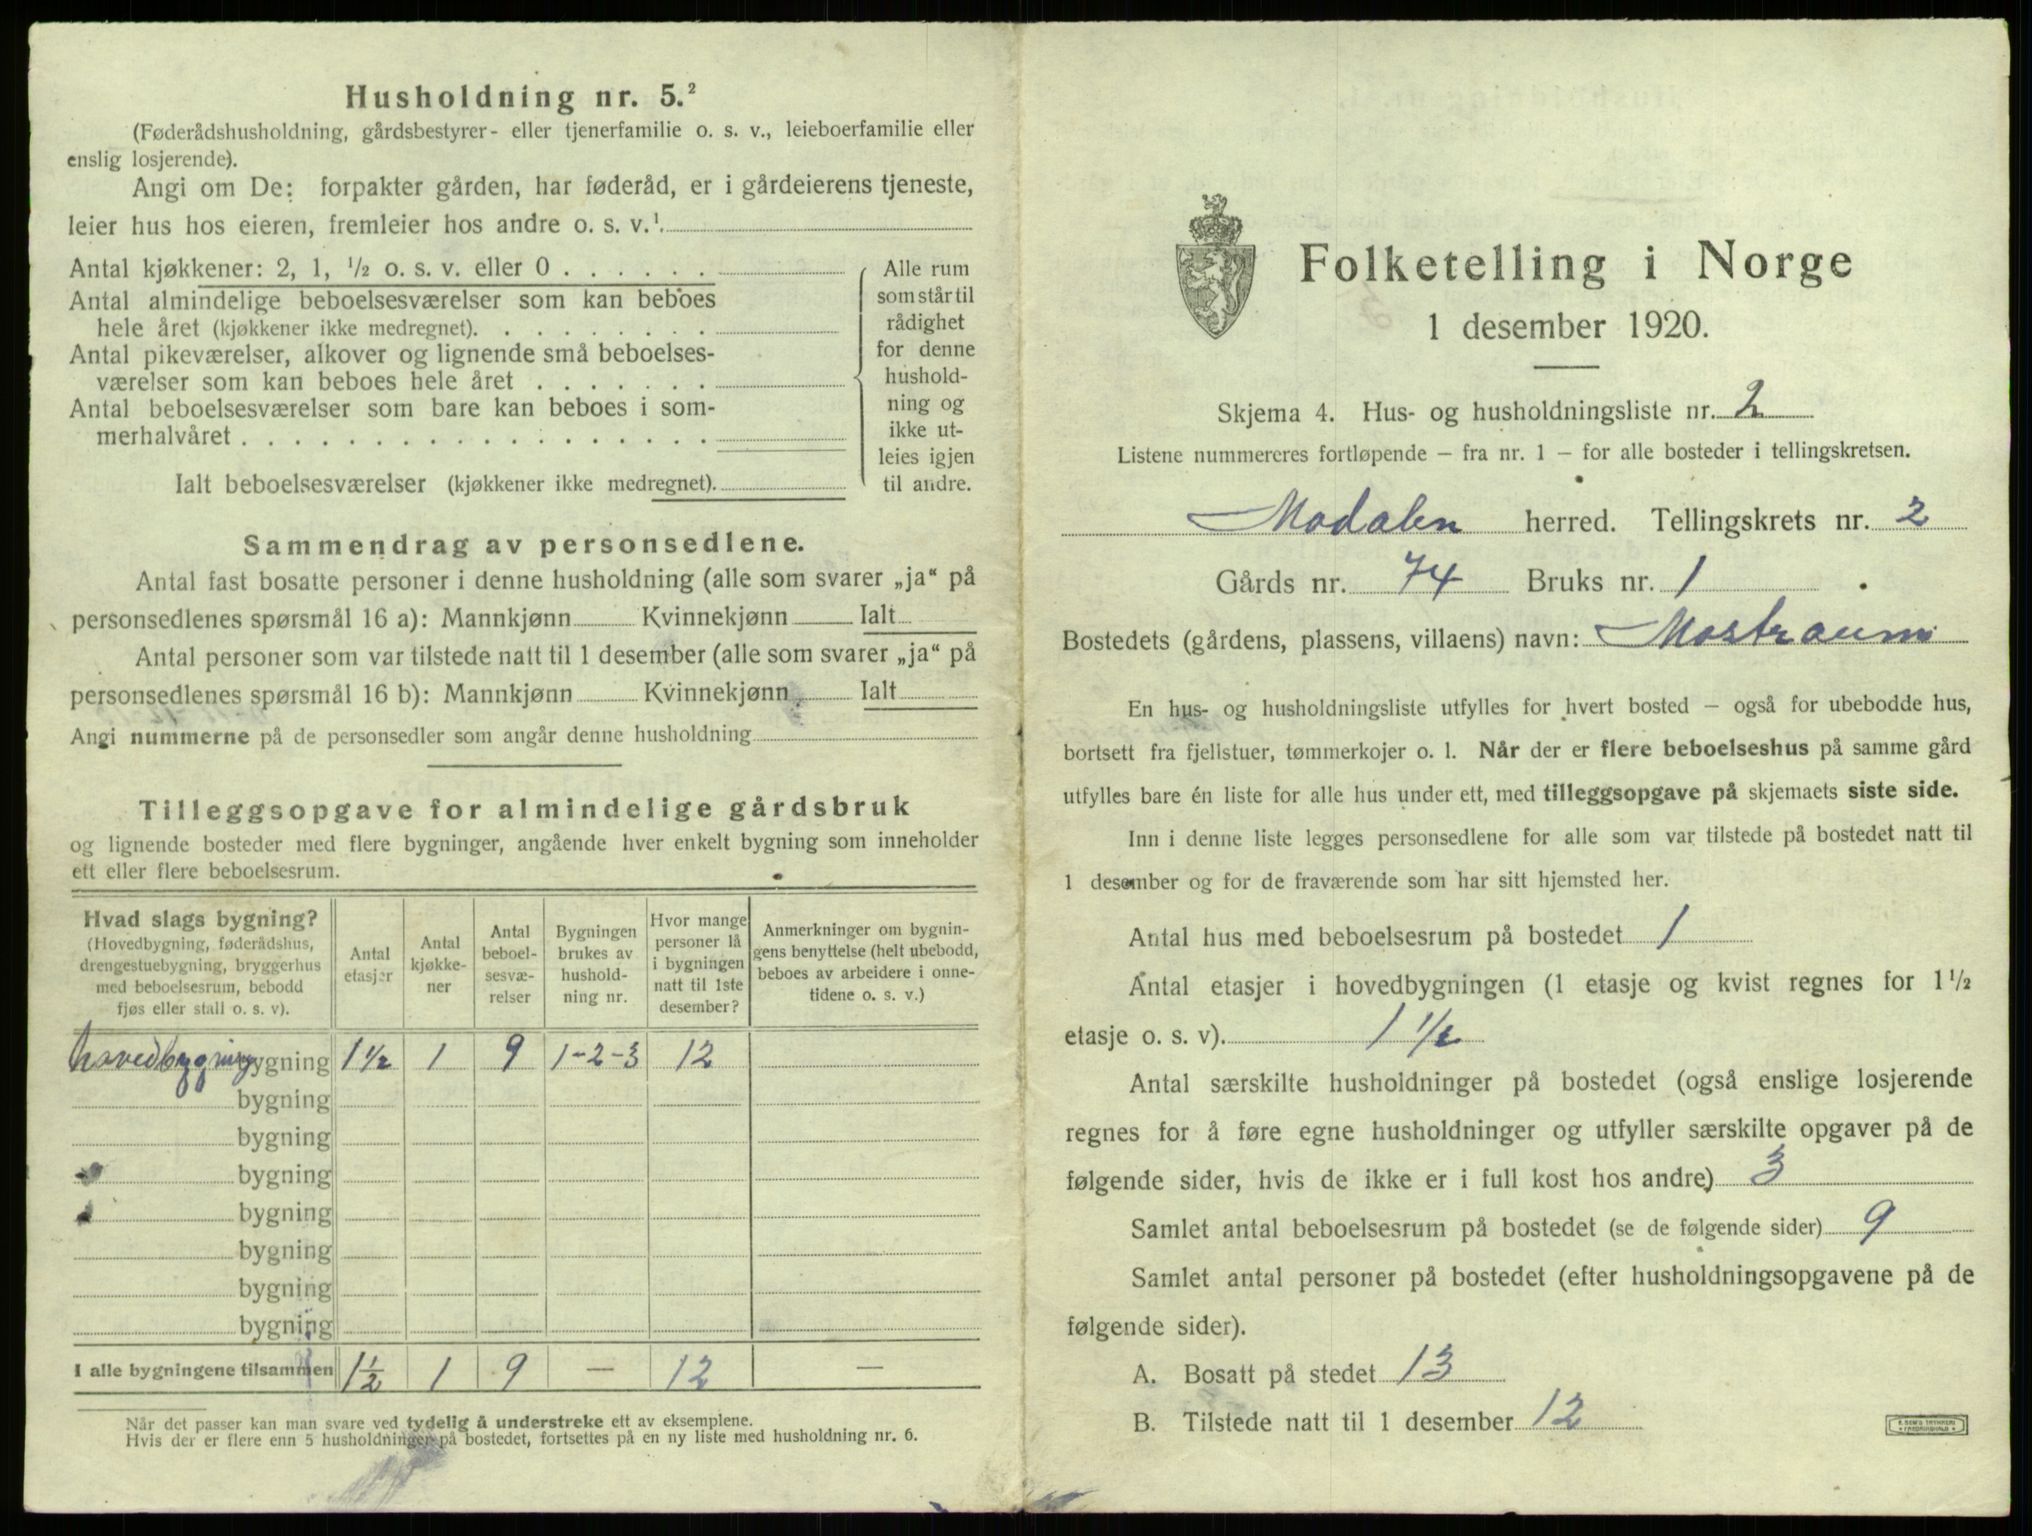 Husholdning nr. 5.²
(Føderådshusholdning, gårdsbestyrer- eller tjenerfamilie o. s. v., leieboerfamilie eller
enslig losjerende).
Angi om De: forpakter gården, har føderåd, er i gårdeierens tjeneste,
leier hus hos eieren, fremleier hos andre o. s. v.¹
Antal kjøkkener: 2, 1, ½ o. s. v. eller 0 . . . . . .
Antal almindelige beboelsesværelser som kan beboes
hele året (kjøkkener ikke medregnet). . . . . . . . .
Antal pikeværelser, alkover og lignende små beboelses-
værelser som kan beboes hele året . . . . . . .
Antal beboelsesværelser som bare kan beboes i som-
merhalvåret . . . . . . . . . . . . . . . . . .
Ialt beboelsesværelser (kjøkkener ikke medregnet).
Alle rum
som står til
rådighet
for denne
hushold-
ning og
ikke ut-
leies igjen
til andre.
Sammendrag av personsedlene.
Antal fast bosatte personer i denne husholdning (alle som svarer „ja“ på
personsedlenes spørsmål 16 a): Mannkjønn Kvinnekjønn Ialt
Antal personer som var tilstede natt til 1 desember (alle som svarer „ja“ på
personsedlenes spørsmål 16 b): Mannkjønn Kvinnekjønn Ialt
Angi nummerne på de personsedler som angår denne husholdning
Tilleggsopgave for almindelige gårdsbruk
og lignende bosteder med flere bygninger, angående hver enkelt bygning som inneholder
ett eller flere beboelsesrum.
Hvad slags bygning?
(Hovedbygning, føderådshus,
drengestuebygning, bryggerhus
med beboelsesrum, bebodd
fjøs eller stall o. s. v).
Antal
etasjer
Antal
kjøkke-
ner
Antal
beboel-
sesvæ-
relser
Bygningen
brukes av
hushold-
ning nr.
Hvor mange
personer lå
i bygningen
natt til 1ste
desember?
Anmerkninger om bygnin-
gens benyttelse (helt ubebodd,
beboes av arbeidere i onne-
tidene o. s. v.)
hovedbygning bygning 1½ 1 9 1-2-3 12
bygning
bygning
bygning
bygning
bygning
bygning
bygning
I alle bygningene tilsammen 1½ 1 9 — 12 —
Når det passer kan man svare ved tydelig å understreke ett av eksemplene.
Hvis der er flere enn 5 husholdninger på bostedet, fortsettes på en ny liste med husholdning nr. 6.
Folketelling i Norge
1 desember 1920.
Skjema 4. Hus- og husholdningsliste nr. 2
Listene nummereres fortløpende — fra nr. 1 — for alle bosteder i tellingskretsen.
Modalen herred. Tellingskrets nr. 2
Gårds nr. 74 Bruks nr. 1
Bostedets (gårdens, plassens, villaens) navn: Mostraum
En hus- og husholdningsliste utfylles for hvert bosted — også for ubebodde hus,
bortsett fra fjellstuer, tømmerkojer o. l. Når der er flere beboelseshus på samme gård
utfylles bare én liste for alle hus under ett, med tilleggsopgave på skjemaets siste side.
Inn i denne liste legges personsedlene for alle som var tilstede på bostedet natt til
1 desember og for de fraværende som har sitt hjemsted her.
Antal hus med beboelsesrum på bostedet 1
Antal etasjer i hovedbygningen (1 etasje og kvist regnes for 1½
etasje o. s. v). 1½
Antal særskilte husholdninger på bostedet (også enslige losjerende
regnes for å føre egne husholdninger og utfyller særskilte opgaver på de
følgende sider, hvis de ikke er i full kost hos andre) 3
Samlet antal beboelsesrum på bostedet (se de følgende sider) 9
Samlet antal personer på bostedet (efter husholdningsopgavene på de
følgende sider).
A. Bosatt på stedet 13
B. Tilstede natt til 1 desember 12